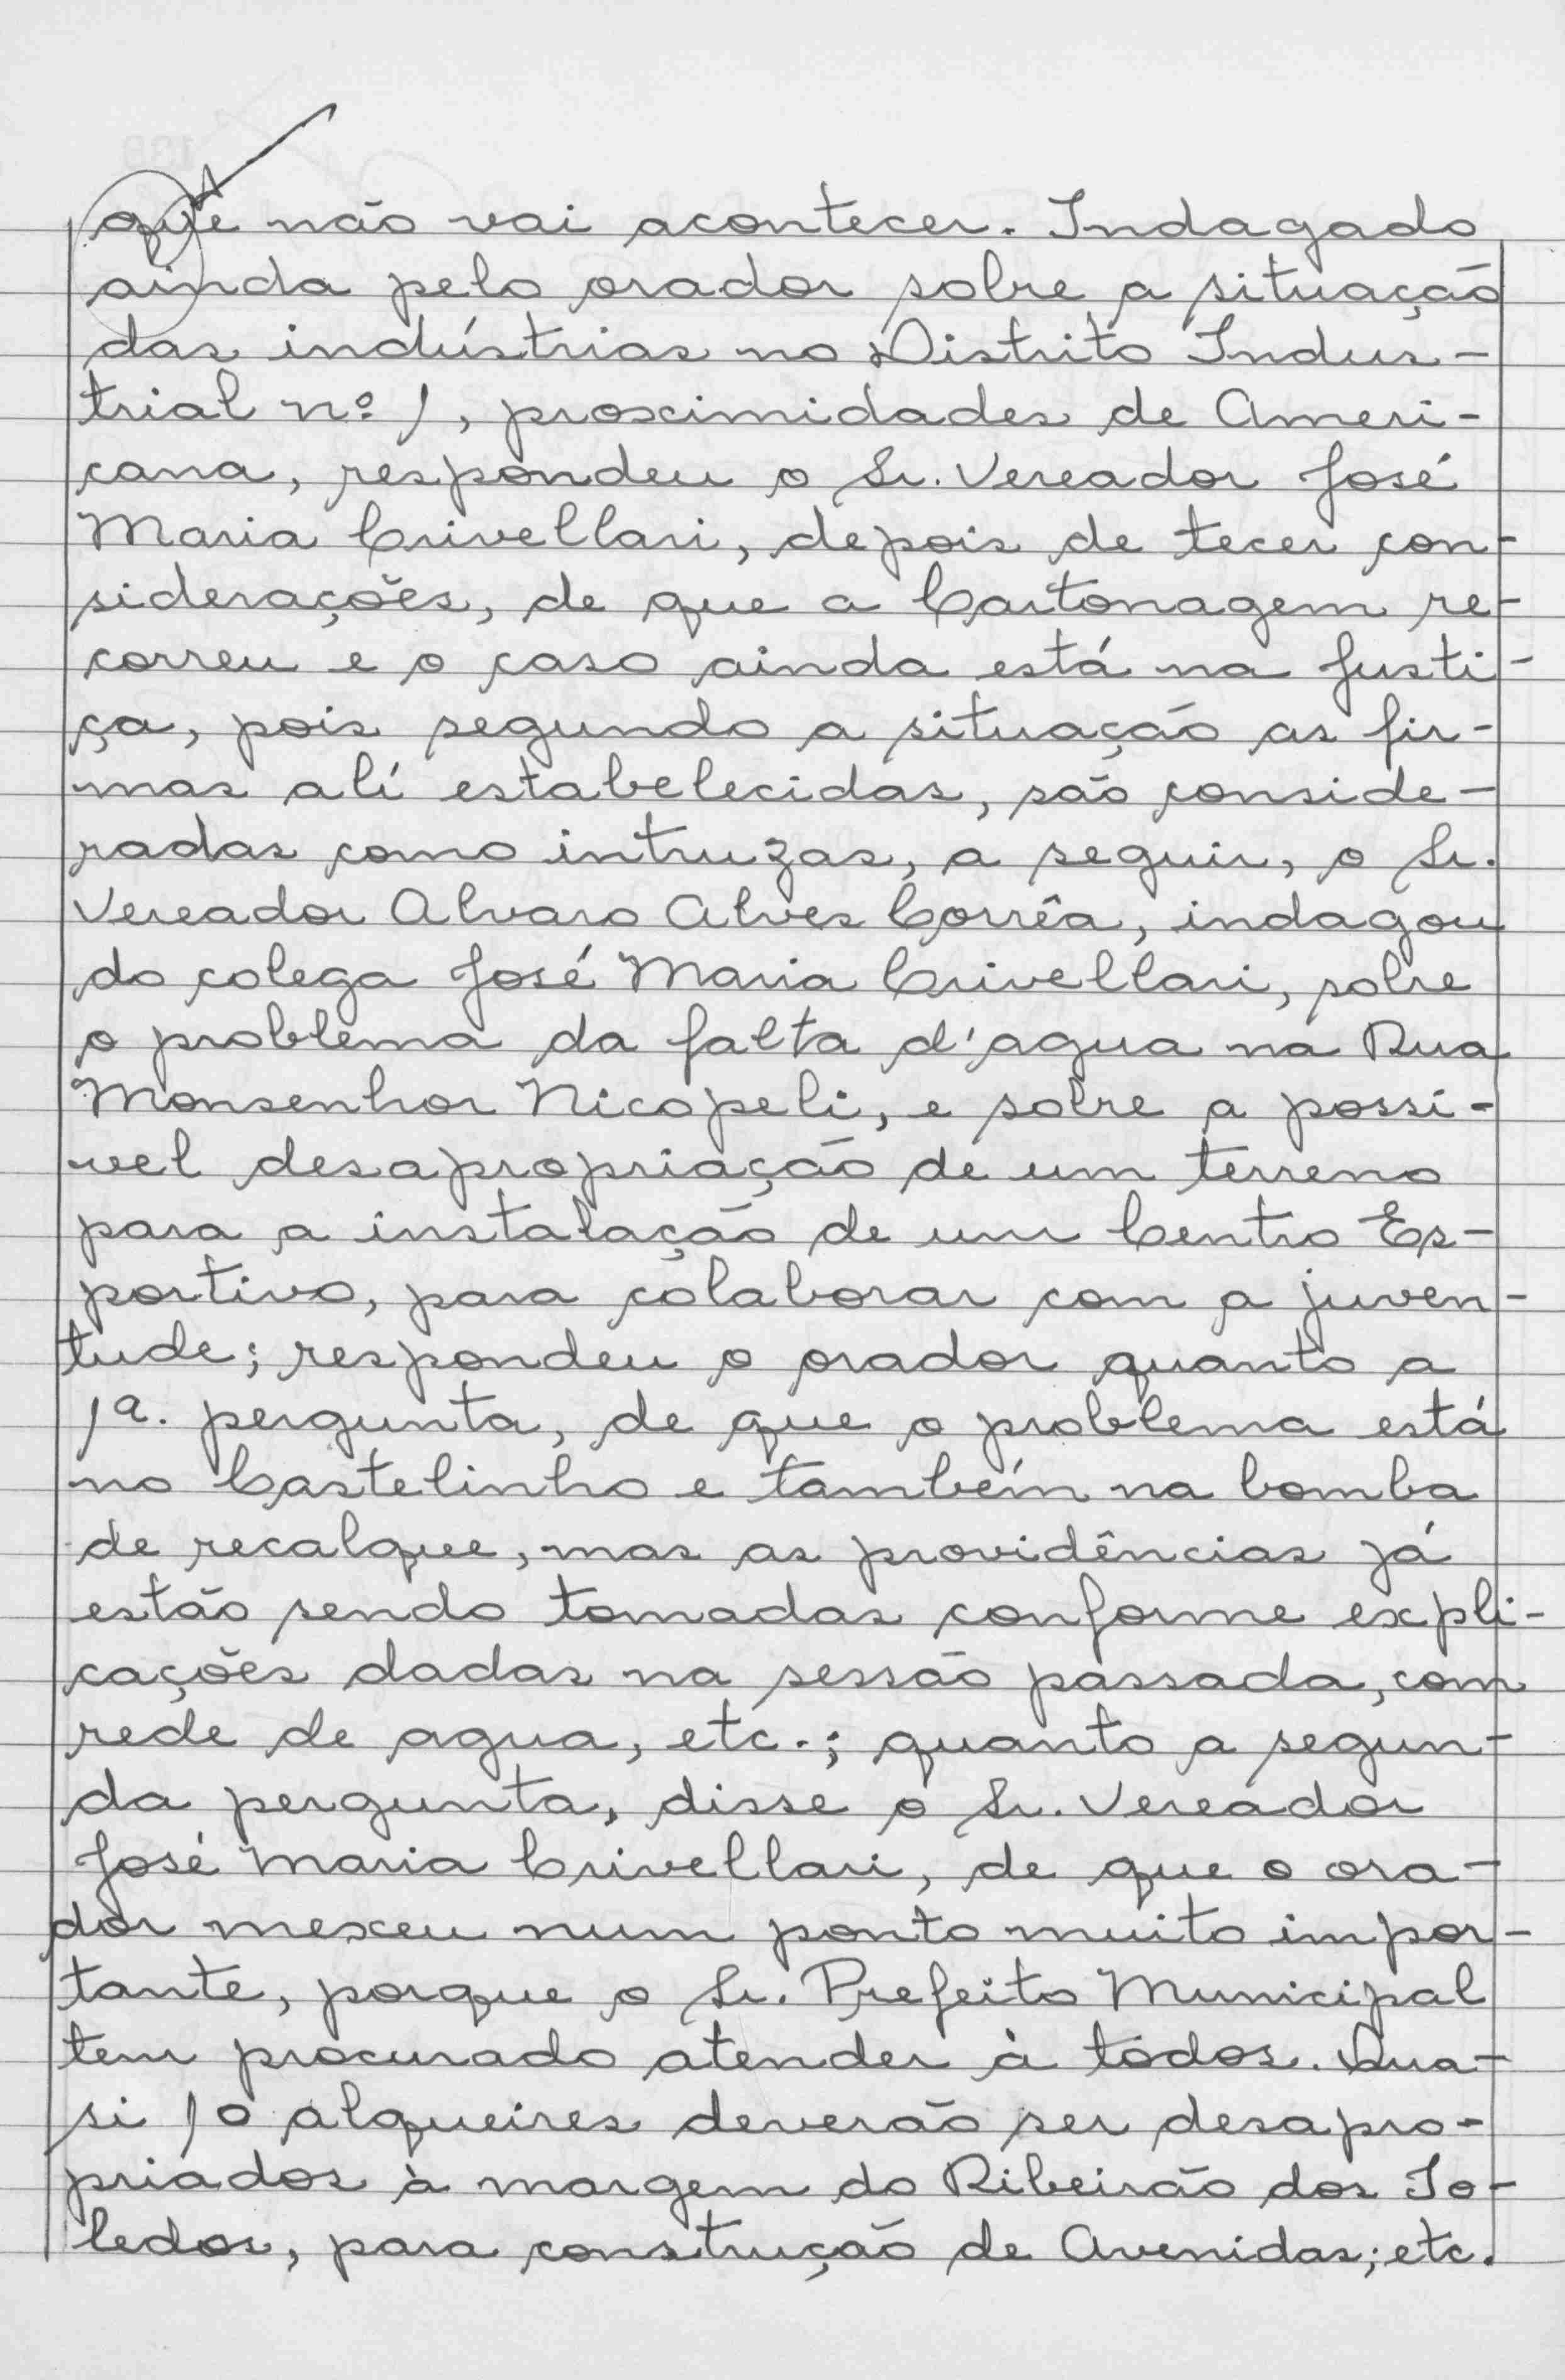 que não vai acontecer. Indagado
ainda pelo orador sobre a situação
das indústrias no Distrito Indus-
trial nº 1, proximidades de Ameri-
cana, respondeu o Sr. Vereador José
Maria Crivellari, depois de tecer con-
siderações, de que a Cartonagem re-
correu e o caso ainda está na Justi-
ça, pois segundo a situação as fir-
mas alí estabelecidas, são conside-
radas como intruzas, a seguir, o Sr.
Vereador Alvaro Alves Corrêa, indagou
do colega José Maria Crivellari, sobre
o problema da falta d'agua na Rua
Monsenhor Nicopeli, e sobre a possi-
vel desapropriação de um terreno
para a instalação de um Centro Es-
portivo, para colaborar com a juven-
tude; respondeu o orador quanto a
1ª. pergunta, de que o problema está
no Castelinho e também na bomba
de recalque, mas as providências já
estão sendo tomadas conforme expli-
cações dadas na sessão passada, com
rede de agua, etc.; quanto a segun-
da pergunta, disse o Sr. Vereador
José Maria Crivellari, de que o ora-
dor mexeu num ponto muito impor-
tante, porque o Sr. Prefeito Municipal
tem procurado atender à todos. Qua-
si 10 alqueires deverão ser desapro-
priados à margem do Ribeirão dos To-
ledos, para construção de Avenidas; etc.